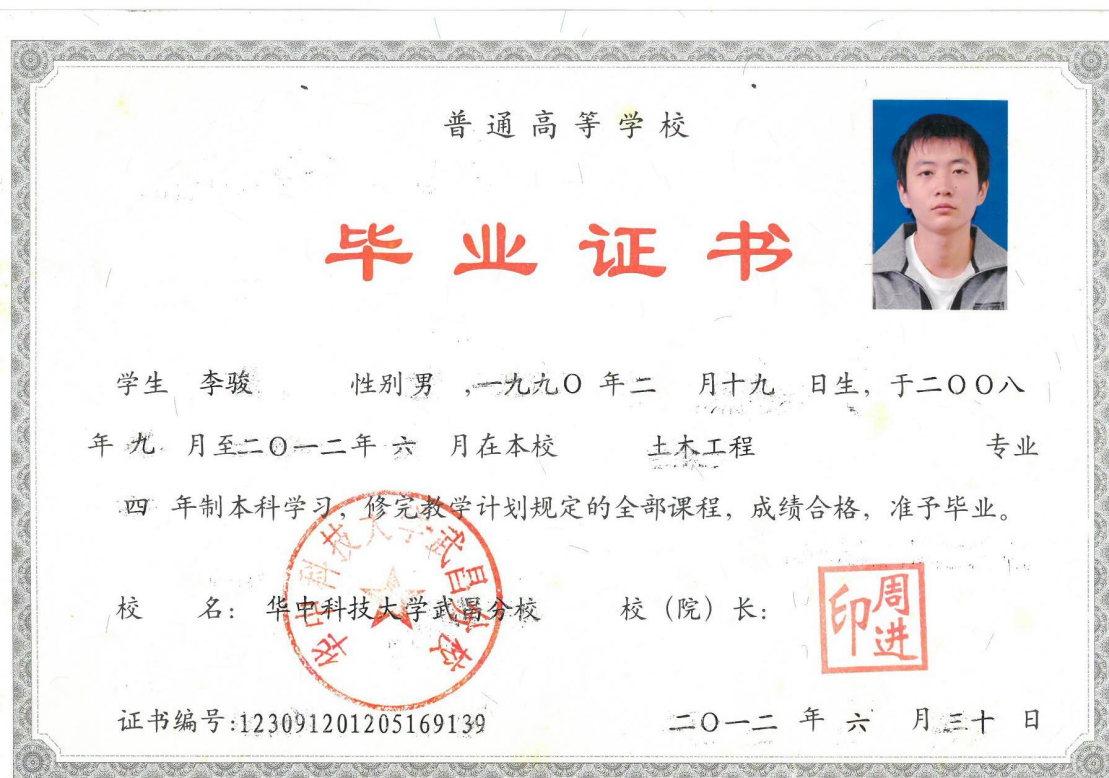 普通高等学校
毕业证书
学生 李骏 性别 男 ,一九九〇 年二 月十九 日生, 于二〇〇八
年 九 月至二〇一二年 六 月在本校 土木工程 专业
四 年制本科学习, 修完教学计划规定的全部课程, 成绩合格, 准予毕业。
华中科技大学武昌分校
校 名: 华中科技大学武昌分校 校 (院) 长:
周进印
证书编号:123091201205169139 二〇一二 年 六 月三十 日